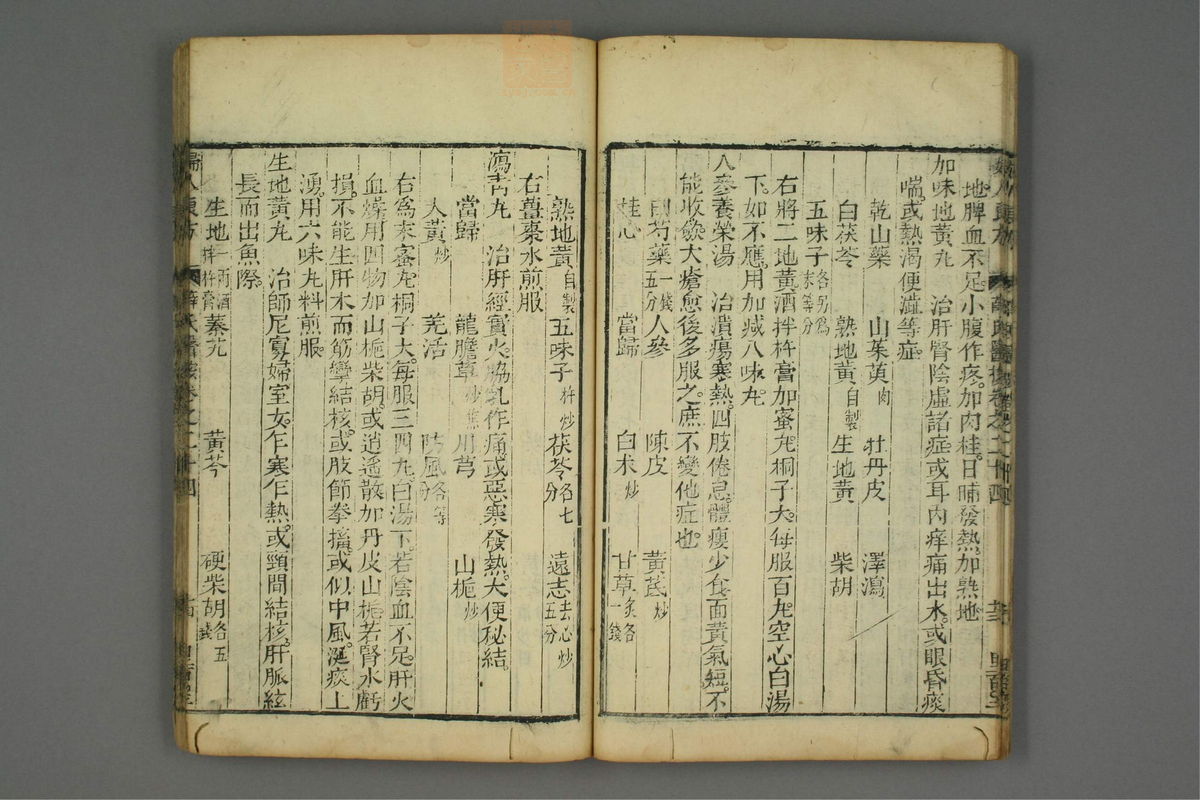 地脾血不足小腹作疼加肉桂日晡發熱加熟地
加味地黃丸　治肝腎陰虛諸症或耳內痒痛出水或眼昏痰
喘或熱渴便澁等症
乾山藥　山茱萸肉　牡丹皮　澤瀉
白茯苓　熟地黃自製　生地黃　柴胡
五味子各另爲末等分
右將二地黃酒拌杵膏加蜜丸桐子大每服百丸空心白湯
下如不應用加減八味丸
人參養榮湯　治潰瘍寒熱四肢倦怠體瘦少食面黃氣短不
能收斂大瘡愈後多服之庶不變他症也
白芍藥一錢五分　人參　陳皮　黃芪炒
桂心　當歸　白术炒　甘草炙各一錢
熟地黃自製　五味子杵炒　茯苓各七分　遠志去心炒五分
右薑棗水煎服
瀉青丸　治肝經實火脇乳作痛或惡寒發熱大便秘結
當歸　龍膽草炒焦　川芎　山梔炒
大黃炒　羌活　防風各等分
右爲末蜜丸桐子大每服三四丸白湯下若陰血不足肝火
血燥用四物加山梔柴胡或逍遥散加丹皮山梔若腎水虧
損不能生肝木而筋攣結核或肢節拳搐或似中風涎痰上
湧用六味丸料煎服
生地黃丸　治師尼寡婦室女乍寒乍熱或頸間結核肝脈絃
長而出魚際
生地一兩酒拌杵膏　秦艽　黃芩　硬柴胡各五錢